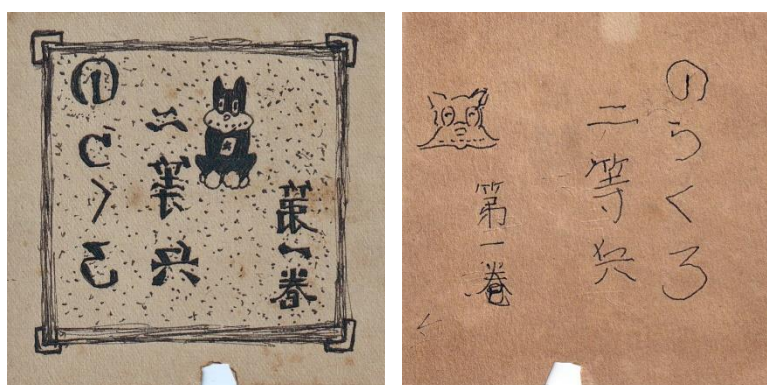 ①らくろ
二等兵
第一巻
①らくろ
二等兵
第一巻